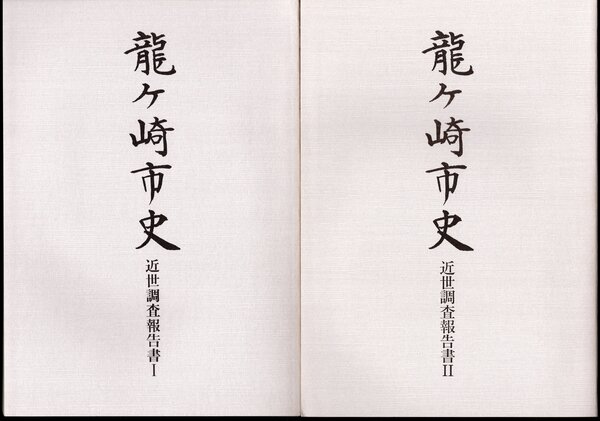 龍ヶ崎市史
近世調査報告書Ⅰ
龍ヶ崎市史
近世調査報告書Ⅱ